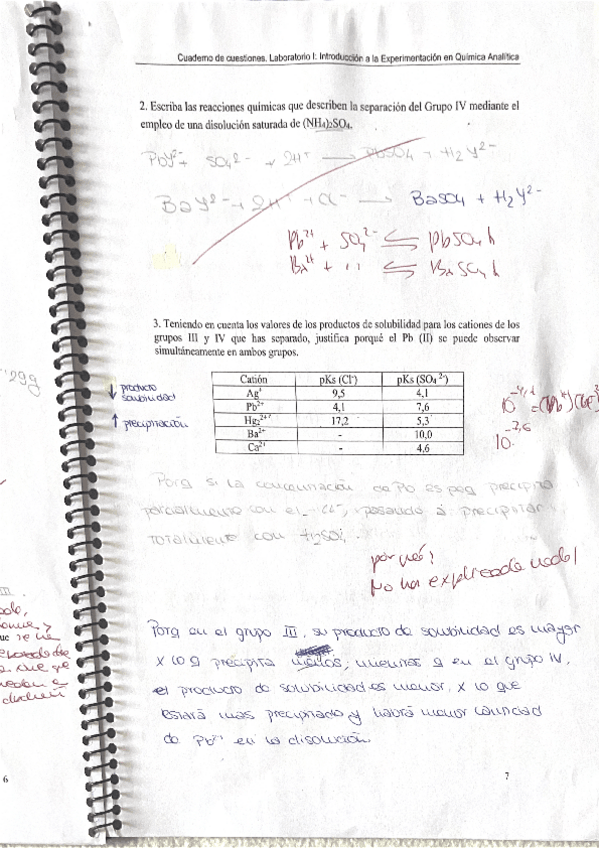 Cuaderno de cuestiones. Laboratorio I: Introducción a la Experimentación en Química Analítica
2. Escriba las reacciones químicas que describen la separación del Grupo IV mediante el
empleo de una disolución saturada de (NH₄)₂SO₄.
PbY²⁻ + SO₄²⁻ + 2H⁺ → PbSO₄ + H₂Y²⁻
BaY²⁻ + 2H⁺ + → BaSO₄ + H₂Y²⁻
Pb²⁺ + SO₄²⁻ ⇌ PbSO₄ ↓
Ba²⁺ + ⇌ BaSO₄ ↓
3. Teniendo en cuenta los valores de los productos de solubilidad para los cationes de los
grupos III y IV que has separado, justifica porqué el Pb (II) se puede observar
simultáneamente en ambos grupos.
299
↓ producto
solubilidad
↑ precipitación
Catión pKs (Cl⁻) pKs (SO₄ ²⁻)
Ag⁺ 9,5 4,1
Pb²⁺ 4,1 7,6
Hg₂²⁺ 17,2 5,3
Ba²⁺ - 10,0
Ca²⁺ - 4,6
10⁻⁴,¹ =
10⁻⁷,⁶
Porq si la concentración de Pb es peq precipita
parcialmente con el Cl⁻, pasando a precipitar
totalmente con
por qué?
No ha explicado nada!
Porq en el grupo III, su producto de solubilidad es mayor
x lo q precipita menos, mientras q en el grupo IV,
el producto de solubilidad es menor, x lo que
estará mas precipitado y habrá menor cantidad
de Pb²⁺ en la disolución.
6
7